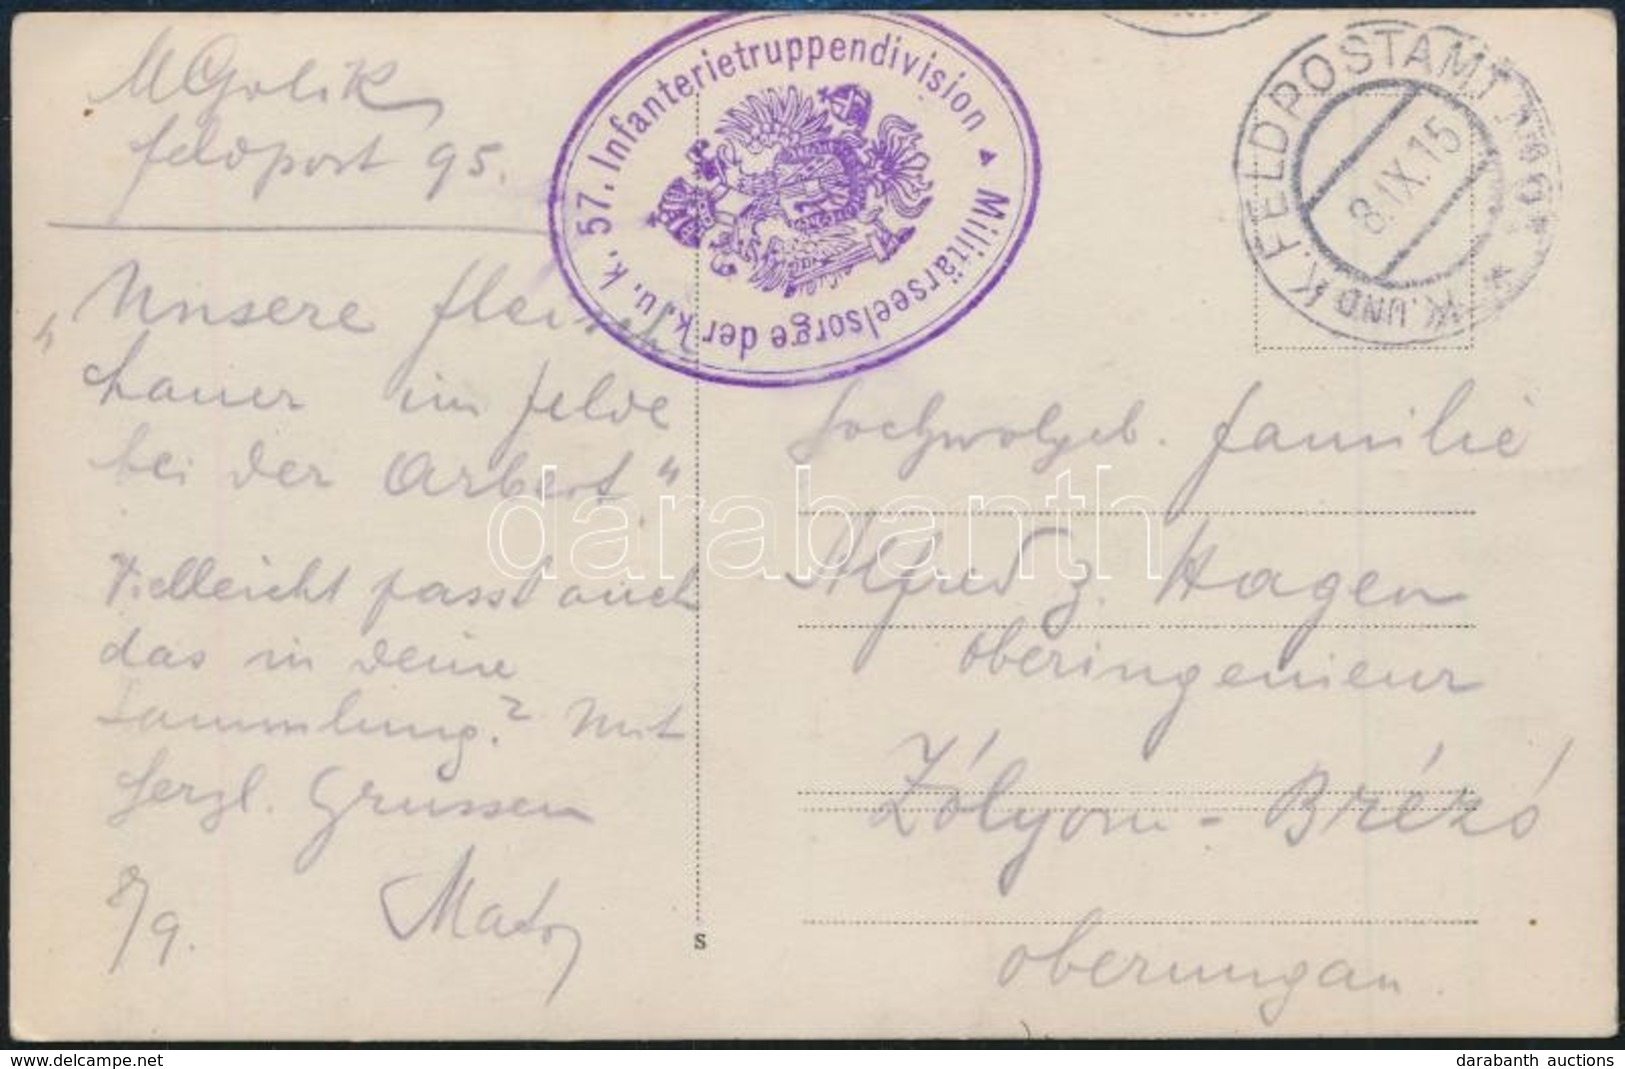 MGolik
Feldpost 95.
Militärseelsorge der k. u. k. 57. Infanterietruppendivision
K. UND K. FELDPOSTAMT
8.IX.15
"Unsere Fleisch-
hauer im Felde
bei der Arbeit"
Vielleicht passt auch
das in deine
Sammlung? Mit
herzl. Grüssen
8/9.
Hochwolgeb. Familie
Alfred z. Hagen
Oberingenieur
Zólyom-Brézó
Oberungarn
S
darabanth
www.darabanth.com
darabanth auctions